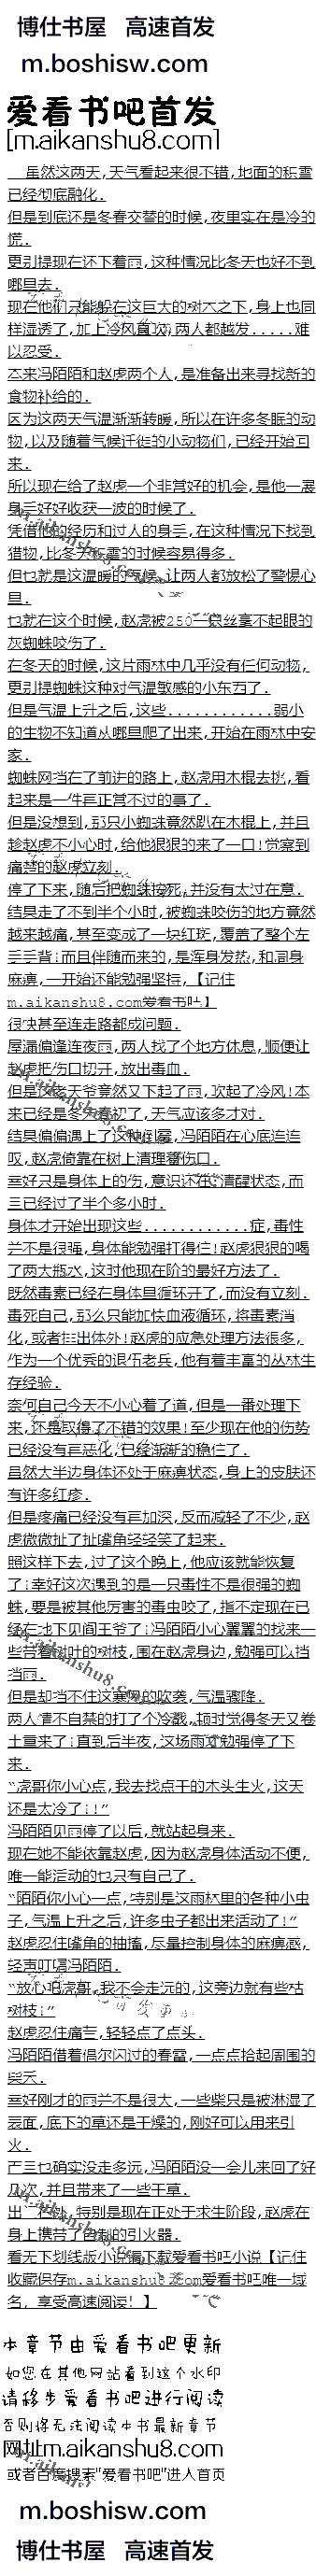 博仕书屋 高速首发
m.boshisw.com
爱看书吧首发
[m.aikanshu8.com]
虽然这两天,天气看起来很不错,地面的积雪
已经彻底融化.
但是到底还是冬春交替的时候,夜里实在是冷的
慌.
更别提现在还下着雨,这种情况比冬天也好不到
哪里去.
现在他们只能躲在这巨大的树木之下,身上也同
样湿透了,加上冷风直吹,两人都越发.....难
以忍受.
本来冯陌陌和赵虎两个人,是准备出来寻找新的
食物补给的.
因为这两天气温渐渐转暖,所以在许多冬眠的动
物,以及随着气候迁徙的小动物们,已经开始回
来.
所以现在给了赵虎一个非常好的机会,是他一展
身手好好收获一波的时候了.
凭借他的经历和过人的身手,在这种情况下找到
猎物,比冬天下雪的时候容易得多.
但也就是这温暖的气候,让两人都放松了警惕心
里.
也就在这个时候,赵虎被250一只丝毫不起眼的
灰蜘蛛咬伤了.
在冬天的时候,这片雨林中几乎没有任何动物,
更别提蜘蛛这种对气温敏感的小东西了.
但是气温上升之后,这些............弱小
的生物不知道从哪里爬了出来,开始在雨林中安
家.
蜘蛛网挡在了前进的路上,赵虎用木棍去挑,看
起来是一件再正常不过的事了.
但是没想到,那只小蜘蛛竟然趴在木棍上,并且
趁赵虎不小心时,给他狠狠的来了一口!觉察到
痛苦的赵虎立刻.
停了下来,随后把蜘蛛摔死,并没有太过在意.
结果走了不到半个小时,被蜘蛛咬伤的地方竟然
越来越痛,甚至变成了一块红斑,覆盖了整个左
手手背!而且伴随而来的,是浑身发热,和周身
麻痹,一开始还能勉强坚持,【记住
m.aikanshu8.com爱看书吧】
很快甚至连走路都成问题.
屋漏偏逢连夜雨,两人找了个地方休息,顺便让
赵虎把伤口切开,放出毒血.
但是该老天爷竟然又下起了雨,吹起了冷风!本
来已经是冬天春初了,天气应该多才对.
结果偏偏遇上了这种倒霉,冯陌陌在心底连连
叹,赵虎倚靠在树上清理着伤口.
幸好只是身体上的伤,意识还在清醒状态,而
且已经过了半个多小时.
身体才开始出现这些............症,毒性
并不是很强,身体能勉强扛得住!赵虎狠狠的喝
了两大瓶水,这时他现在阶的最好方法了.
既然毒素已经在身体里循环开了,而没有立刻.
毒死自己,那么只能加快血液循环,将毒素消
化,或者排出体外!赵虎的应急处理方法很多,
作为一个优秀的退伍老兵,他有着丰富的丛林生
存经验.
奈何自己今天不小心着了道,但是一番处理下
来,还是取得了不错的效果!至少现在他的伤势
已经没有再恶化,已经渐渐的稳住了.
虽然大半边身体还处于麻痹状态,身上的皮肤还
有许多红疹.
但是疼痛已经没有再加深,反而减轻了不少,赵
虎微微扯了扯嘴角轻轻笑了起来.
照这样下去,过了这个晚上,他应该就能恢复
了!幸好这次遇到的是一只毒性不是很强的蜘
蛛,要是被其他厉害的毒虫咬了,指不定现在已
经在地下见阎王爷了!冯陌陌小心翼翼的找来一
些带着树叶的树枝,围在赵虎身边,勉强可以挡
挡雨.
但是却挡不住这寒风的吹袭,气温骤降.
两人情不自禁的打了个冷战,顿时觉得冬天又卷
土重来了!直到后半夜,这场雨才勉强停了下
来.
“虎哥你小心点,我去找点干的木头生火,这天
还是太冷了!!”
冯陌陌见雨停了以后,就站起身来.
现在她不能依靠赵虎,因为赵虎身体活动不便,
唯一能活动的也只有自己了.
“陌陌你小心一点,特别是这雨林里的各种小虫
子,气温上升之后,许多虫子都出来活动了!”
赵虎忍住嘴角的抽搐,尽量控制身体的麻痹感,
轻声叮嘱冯陌陌.
“放心吧虎哥,我不会走远的,这旁边就有些枯
树枝!”
赵虎忍住痛苦,轻轻点了点头.
冯陌陌借着偶尔闪过的春雷,一点点拾起周围的
柴火.
幸好刚才的雨并不是很大,一些柴只是被淋湿了
表面,底下的草还是干燥的,刚好可以用来引
火.
而且也确实没走多远,冯陌陌没一会儿来回了好
几次,并且带来了一些干草.
出门在外,特别是现在正处于求生阶段,赵虎在
身上携带了自制的引火器.
看无下划线版小说请下载爱看书吧小说【记住
收藏保存m.aikanshu8.com爱看书吧唯一域
名，享受高速阅读！】
本章节由爱看书吧更新
如您在其他网站看到这个水印
请移步爱看书吧进行阅读
否则将无法阅读本书最新章节
网址m.aikanshu8.com
或者百度搜索"爱看书吧"进入首页
m.boshisw.com
博仕书屋 高速首发